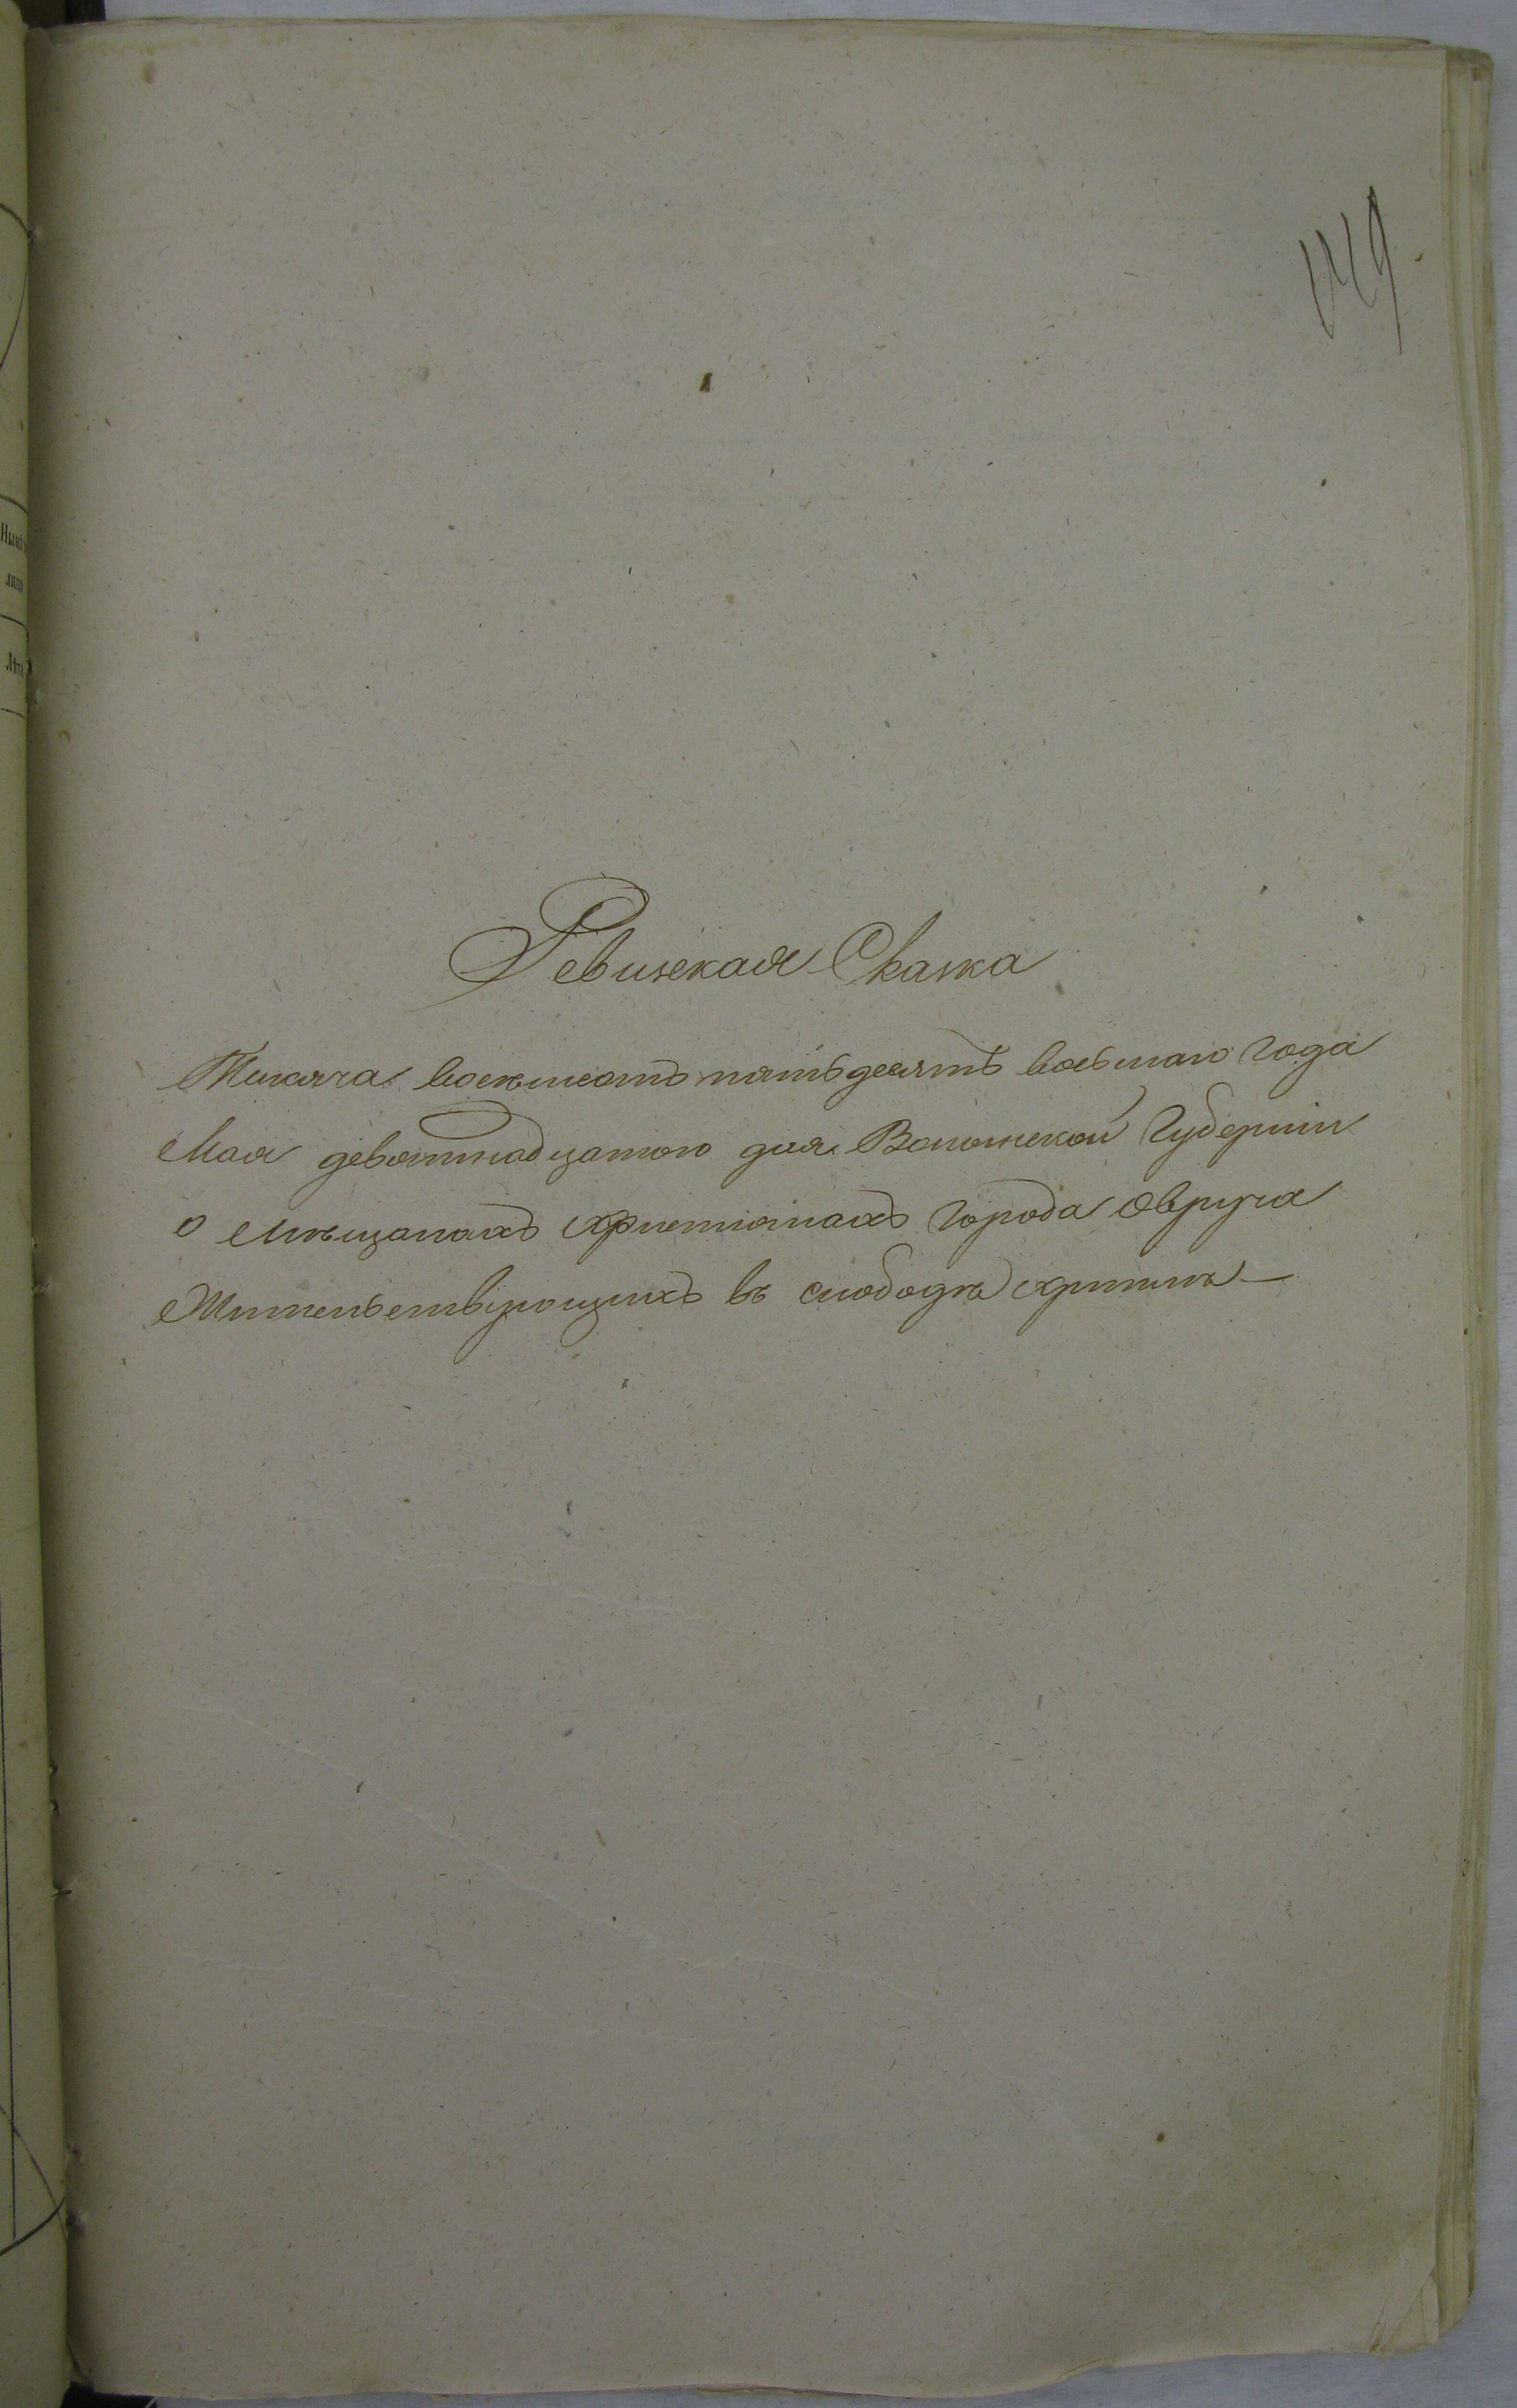 149
Ревизская Сказка
Тысяча восемьсотъ пятьдесятъ восьмаго Года
Мая девятнадцатого дня Волынской Губерніи
о Мѣщанахъ христіанахъ Города Овруча
Жительствующихъ въ слободѣ